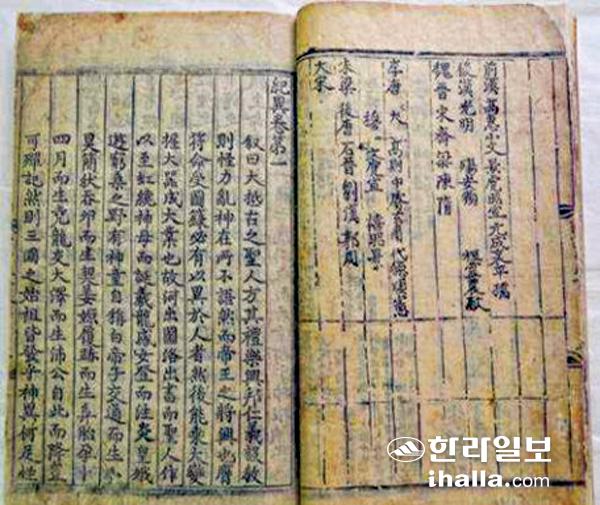 前漢 高惠小文景虎昭宣元成哀平孺
後漢光明 殤安順 桓靈農獻
魏晉宋齊梁陳隋
李唐 大 高則中 玄肅代德順憲
宣 昭景
朱梁 後唐 石晉 劉漢 郭周
大宋
紀異卷第一
叙曰大抵古之聖人方其禮樂興邦仁義設敎
則怪力亂神在所不語然而帝王之將興也膺
符命受圖籙必有以異於人者然後能乘大變
握大器成大業也故河出圖洛出書而聖人作
以至虹繞神母而誕羲龍感女登而注炎皇娥
遊窮桑之野有神童自稱白帝子交通而生小
昊簡狄吞卵而生契姜嫄履跡而生弃胎孕十
四月而生堯龍交大澤而生沛公自此而降豈
可殫記然則三國之始祖皆發乎神異何足怪
한라일보
ihalla.com